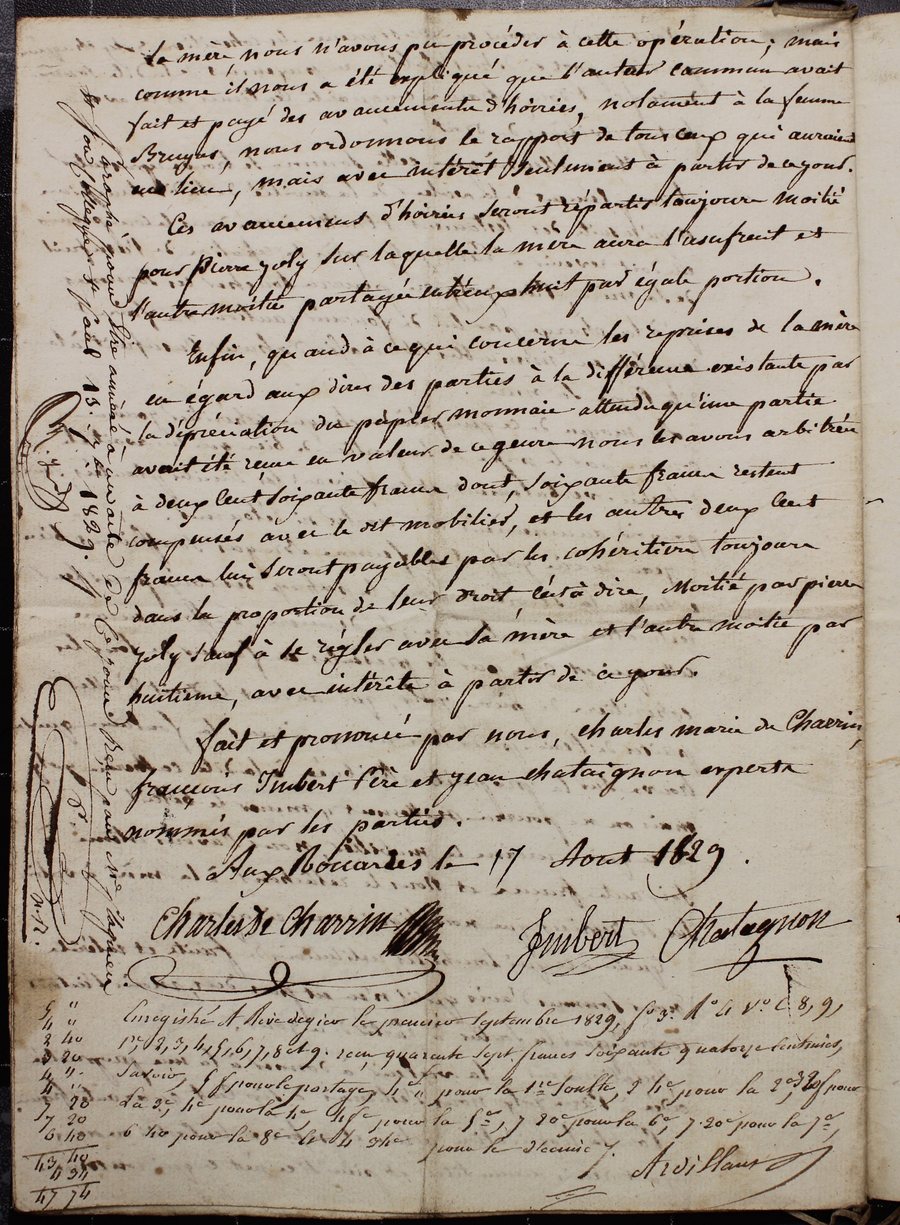 la mère nous n'avons pu procéder à cette opération; mais
comme il nous a été expliqué que l'auteur commun avait
fait et payé des avancements d'hoiries, notament à la femme
Bruyas, nous ordonnons le rapport de tous ceux qui auraient
eu lieu, mais avec intérêt seulement à partir de ce jour.
Ces avancemens d'hoiries seront répartis toujours moitié
pour pierre joly sur laquelle la mère aura l'usufruit et
l'autre moitié partagée entr'eux huit par égale portion.
Enfin, quand à ce qui concerne les reprises de la mère
eu égard aux dires des parties à la différence existante par
la dépréciation du papier monnaie attendu qu'une partie
avait été reçue en valeur de ce genre nous les avons arbitrées
à deux cent soixante francs dont, soixante francs restent
compensés avec le dit mobilier, et les autres deux cent
francs lui seront payables par les cohéritiers toujours
dans la proportion de leur droit c'est à dire, Moitié par pierre
joly sauf à se régler avec sa mère et l'autre moitié par
huitieme, avec intérêts à partir de ce jour.
fait et prononcé par nous, charles marie de Charrin,
françois Imbert père et jean chataignon experts
nommés par les parties.
Aux Rouardes le 17 Aout 1829.
Charles De Charrin
Imbert
Chatagnon
Enregistré A Rive de gier le premier septembre 1829, fo 3. Ro Vo C 8, 9,
1re 2, 3, 4, 5, 6, 7, 8 et 9. reçu quarante sept francs soixante quatorze centimes,
Savoir, 5 f pour le partage, 4 " pour la 1re Soulte, 2 40 pour la 2e, 3 20 pour
La 3e, 4 pour la 4e pour la 5e, 7 20 pour la 6e, 7. 20 pour la 7e,
6 40 pour la 8e et 4 34
pour le décime
5 "
4 "
2 40
3 20
4 "
4 "
7 20
7 20
6 40
43 40
4 34
47 74
Paraphé pour être annexé à un acte de ce jour
13. 1829.